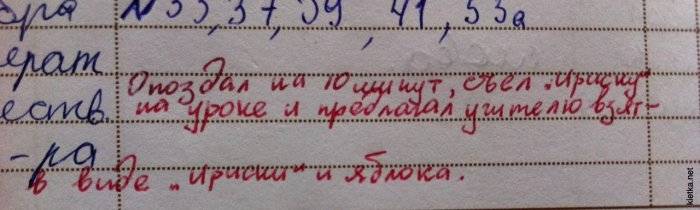 № 35, 37, 39, 41, 53а
ерат
Опоздал на 10 минут, съел „Ириску"
еств. на уроке и предлагал учителю взят-
-ра
в виде „Ириски" и яблока.
kletka.net